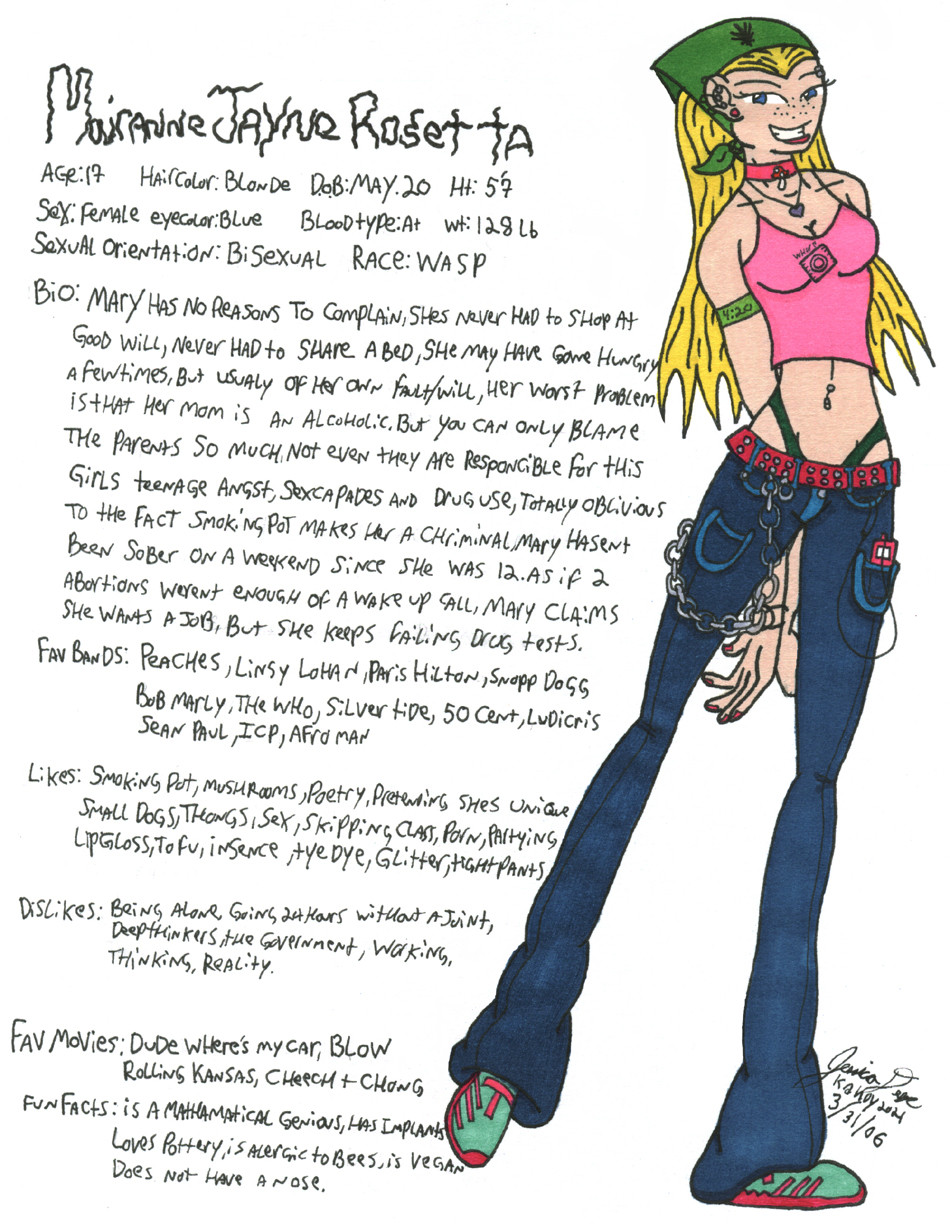 Mairanne Jayne Rosetta
Age:17 Haircolor: Blonde DoB: May. 20 Ht: 5'7
Sex: Female eyecolor: Blue Bloodtype: A+ wt: 128 lb
Sexual Orientation: Bisexual Race: WASP
Bio: Mary has no reasons to complain, shes never had to shop at
Good will, never had to share a bed, she may have gone hungry
a few times, but usualy of her own fault/will, her worst problem
is that her mom is an alcoholic. But you can only blame
the parents so much, not even they are responcible for this
girls teenage angst, sexcapades and drug use, totally oblivious
to the fact smoking pot makes her a chriminal, Mary hasent
been sober on a weekend since she was 12. As if 2
abortions werent enough of a wake up call, Mary claims
she wants a job, but she keeps failing drug tests.
Fav Bands: Peaches, Linsy Lohan, Paris Hilton, Snopp Dogg
Bob Marly, The Who, Silvertide, 50 Cent, Ludicris
Sean Paul, ICP, Afroman
Likes: Smoking pot, mushrooms, poetry, pretending shes unique
small dogs, thongs, sex, skipping class, porn, partying,
lipgloss, tofu, insence, tye dye, glitter, tight pants
Dislikes: Being alone, going 24 hours without a joint,
deepthinkers, the government, working,
thinking, reality.
Fav Movies: Dude Where's my car, Blow
Rolling Kansas, Cheech + Chong
Fun Facts: is a mathamatical genious, has implants
loves pottery, is alergic to bees, is vegan
does not have a nose.
WHORE
4:20
3/31/06